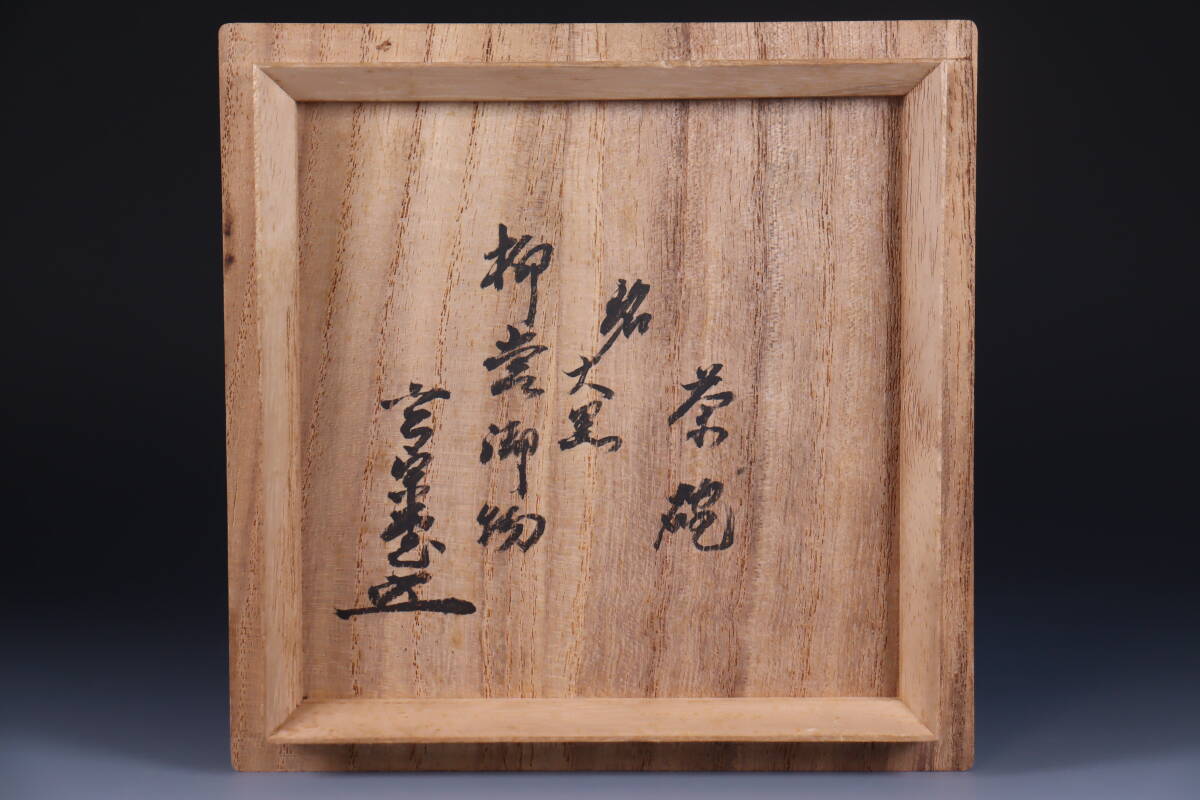 茶碗
銘
大黒
柳営御物